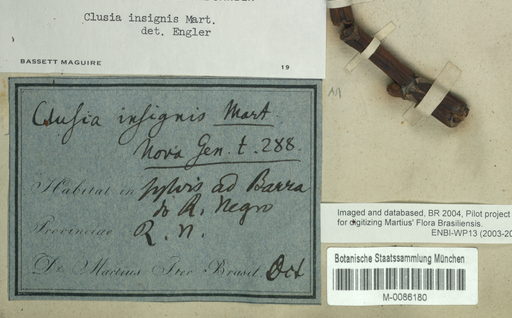 Clusia insignis Mart.
det. Engler
BASSETT MAGUIRE 19
Clusia insignis Mart
Nova Gen. t. 288.
Habitat in sylvis ad Barra
do R. Negro
Provinciae R. N.
Dr. Martius Iter Brasil. Oct
Imaged and databased, BR 2004, Pilot project
for digitizing Martius' Flora Brasiliensis.
ENBI-WP13 (2003-20
Botanische Staatssammlung München
M-0086180